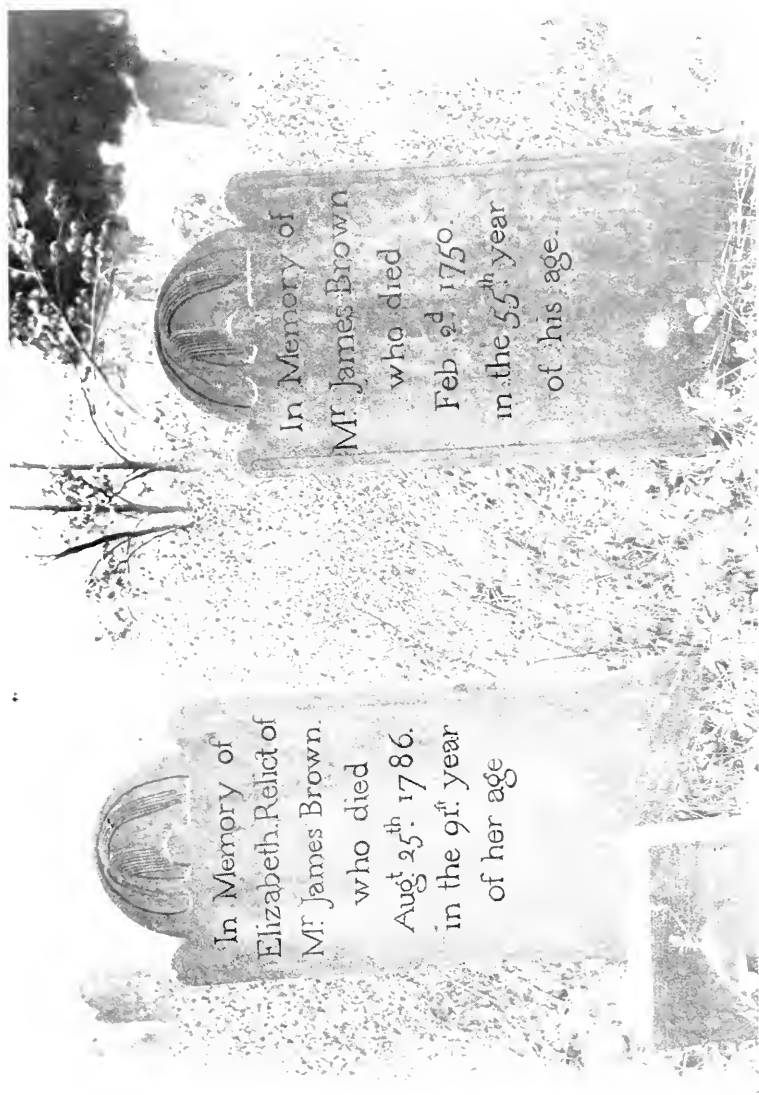 In Memory of
Elizabeth Relict of
Mr. James Brown.
who died
Augt. 25th. 1786.
in the 91ſt. year
of her age
In Memory of
Mr. James Brown
who died
Feb 2d. 1750.
in the 55th year
of his age.